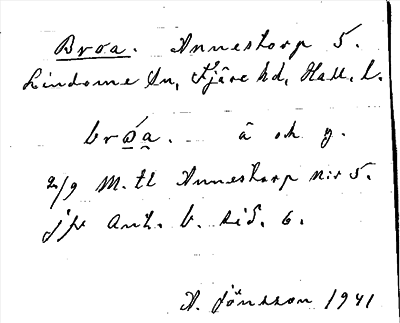 Broa. Annestorp 5.
Lindome sn, Fjäre hd, Hall. l.
bróa. å ok g.
2/9 M. tl Annestorp n:r 5.
jfr Ant. b. sid. 6.
A. Jönsson 1941